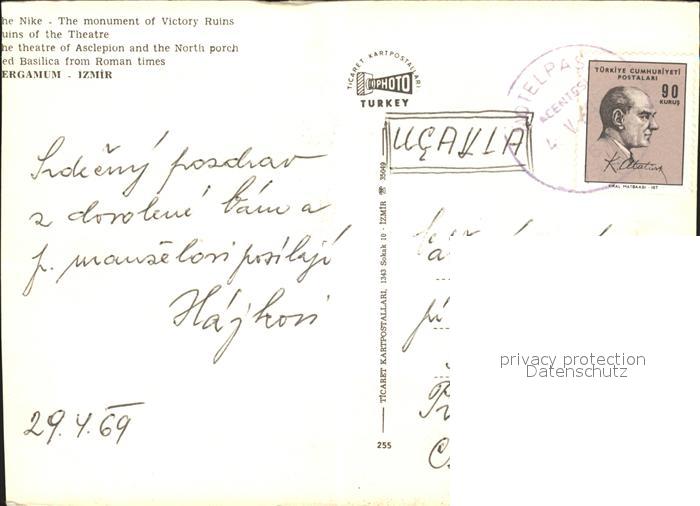 he Nike - The monument of Victory Ruins
uins of the Theatre
he theatre of Asclepion and the North porch
ed Basilica from Roman times
ERGAMUM - IZMİR
TİCARET KARTPOSTALLARI
PHOTO
TURKEY
UÇAKLA
HOTEL
ACENTESİ
TÜRKİYE CUMHURİYETİ
POSTALARI
90
KURUŞ
K. Atatürk
Srdečný pozdrav
z dovolené Vám a
p. manželovi posílají
Hájkovi
29.4.69
TİCARET KARTPOSTALLARI, 1343 Sokak 10 - İZMİR ☎ 35049
255
privacy protection
Datenschutz